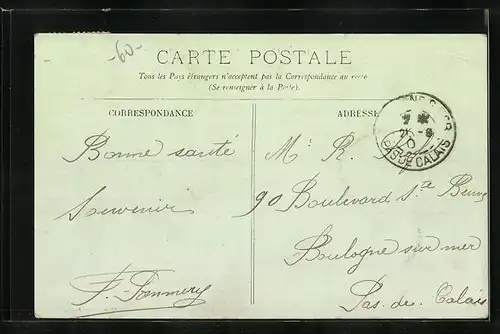 -60-
CARTE POSTALE
Tous les Pays étrangers n'acceptent pas la Correspondance au recto
(Se renseigner à la Poste).
CORRESPONDANCE
ADRESSE
PAS DE CALAIS
Bonne santé
Souvenir
M. R.
90 Boulevard Ste Beuve
Boulogne sur mer
Pas. de. Calais